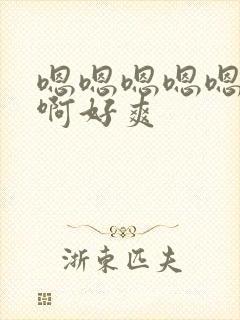 嗯嗯嗯嗯嗯
啊好爽
浙东匹夫